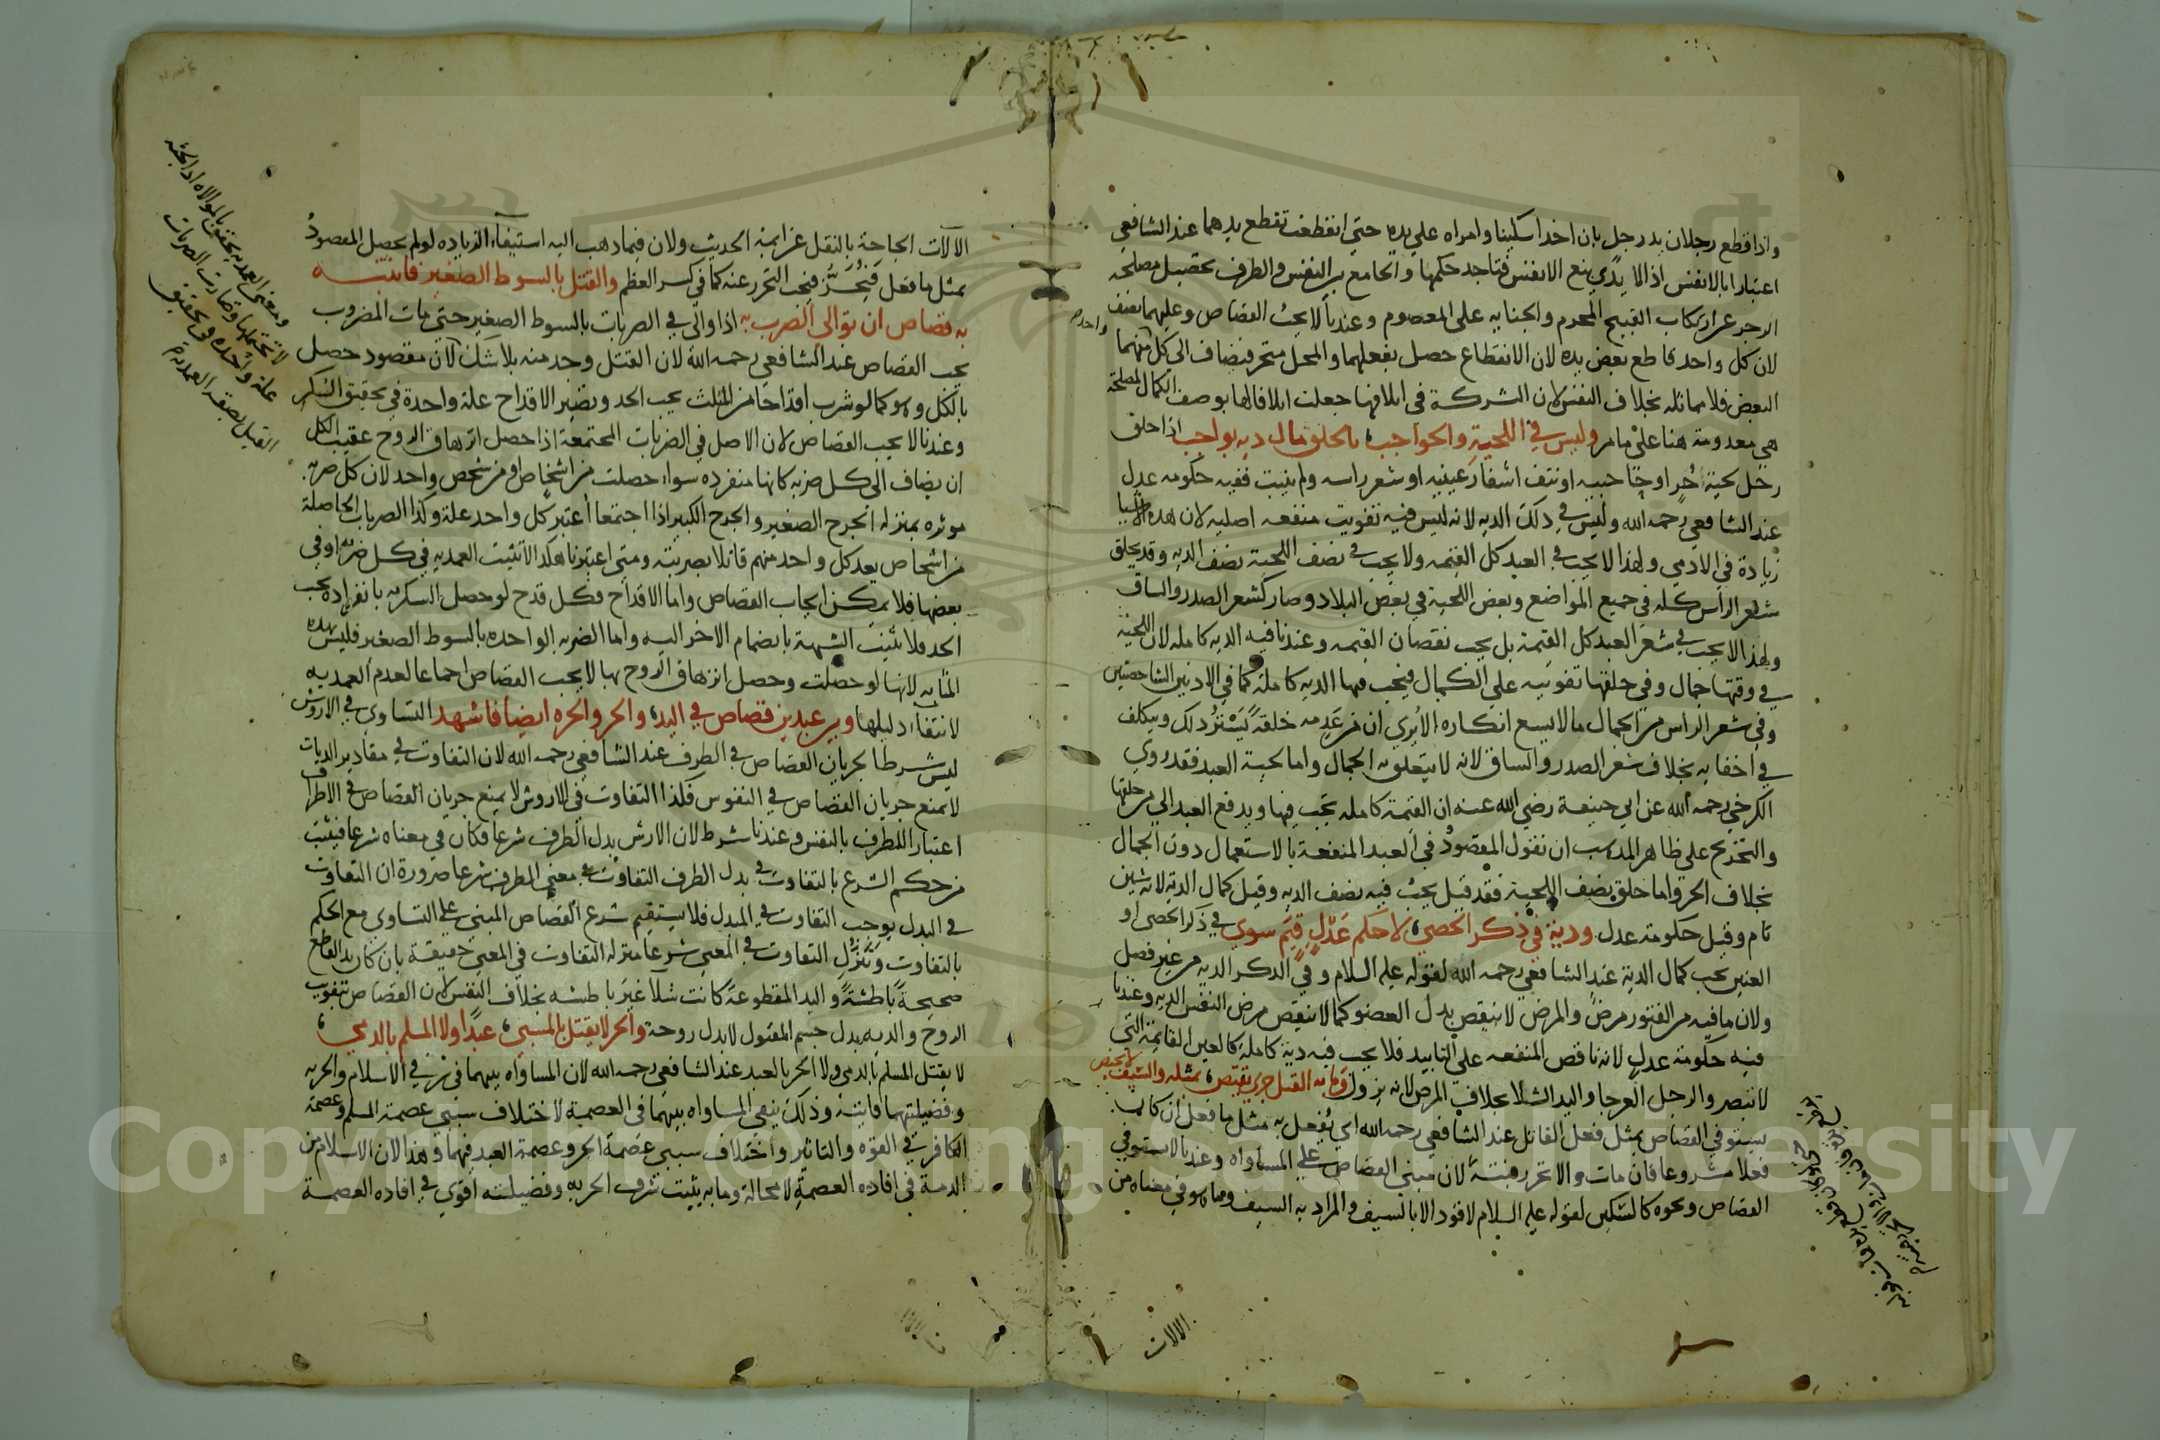 واذا قطع رجلان يد رجل بان اخدا سكينا وامراه علي يده حتي انقطعت تقطع يدهما عند الشافعي
اعتبارا بالانفس اذ الايدي تبع الانفس فتاخد حكمها والجامع بين النفس والطرف تحصيل مصلحة
الزجر عن ارتكاب القبيح المحرم والجنايه علي المعصوم وعندنا لا يجب القصاص وعليهما نصف
واحده
لان كل واحد قاطع بعض يده لان الانقطاع حصل بفعلهما والمحل متحر فيضاف الي كل منهما
البعض فلا مماثله بخلاف النفس لان الشركة في اتلافها جعلت اتلافا لها بوصف الكمال لمصلحة
هي معدومة هنا علي ما مر وليس في اللحية والحواجب بالحلق مال ديه بواجب اذا حلق
رجل لحية آخر او حاجبيه او نتف اشفار عينيه او شعر راسه ولم ينبت ففيه حكومه عدل
عند الشافعي رحمه الله وليس في ذلك الديه لانه ليس فيه تفويت منفعه اصليه لان هده الاشيا
زيادة في الادمي ولهذا لا يجب في العبد كل القيمه ولا يجب في نصف اللحية نصف الديه وقد يحلق
شعر الرأس كله في جميع المواضع وبعض اللحية في بعض البلاد وصار كشعر الصدر والساق
ولهذا لا يجب في شعر العبد كل القيمة بل يجب نقصان القيمه وعندنا فيه الديه كامله لان اللحية
في وقتها جمال وفي حلقها تفويته علي الكمال فيجب فيها الديه كاملة كما في الاذنين الشاخصتين
وفي شعر الراس من الجمال ما لا يسع انكاره الا يري ان من عدمه خلقة يستر ذلك ويتكلف
في اخفايه بخلاف شعر الصدر والساق لانه لا يتعلق به الجمال واما لحية العبد فقد روي
الكرخي رحمه الله عن ابي حنيفة رضي الله عنه ان القيمة كامله تجب فيها ويدفع العبد الي من حلقها
والتخريج علي ظاهر المذهب ان نقول المقصود في العبد المنفعة بالاستعمال دون الجمال
بخلاف الحر واما حلق نصف اللحية فقد قيل يجب فيه نصف الديه وقيل كمال الدية لانه شين
تام وقيل حكومة عدل ودية في ذكر الخصي لا حكم عدل قيم سوي في ذكر الخصي او
العنين يجب كمال الدية عند الشافعي رحمه الله لقوله عليه السلام وفي الذكر الديه من غير فصل
ولان ما فيه من الفتور مرض والمرض لا ينقص بدل العضو كما لا ينقص مرض النفس الديه وعندنا
فيه حكومة عدل لانه ناقص المنفعه علي التابيد فلا يجب فيه دية كاملة كالعين القائمة التي
لا تبصر والرجل العرجا واليد الشلا بخلاف المرض لانه يزول وما به القتل جري يقتص بمثله والسيف لا يختص
يستوفي القصاص بمثل فعل القاتل عند الشافعي رحمه الله اي يفعل به مثل ما فعل ان كان
فعلا مشروعا فان مات والا تحز رقبته لان مبني القصاص علي المساواه وعندنا لا يستوفي
القصاص ونحوه كالسكين لقوله عليه السلام لا قود الا بالسيف والمراد به السيف وما هو في معناه من
الالات
الآلات الجارحة بالنقل عن ايمة الحديث ولان فيما ذهب اليه استيفاء الزياده لو لم يحصل المقصود
بمثل ما فعل فيحز فيجب التحرز عنه كما في كسر العظم والقتل بالسوط الصغير فانتبه
به قصاص ان توالي الضرب به اذا والي في الضربات بالسوط الصغير حتي مات المضروب
يجب القصاص عند الشافعي رحمه الله لان القتل وجد منه بلا شك لان مقصود حصل
بالكل وهو كما لو شرب اقداحا من المثلث يجب الحد وتصير الاقداح علة واحدة في تحقيق السكر
وعندنا لا يجب القصاص لان الاصل في الضربات المجتمعة اذا حصل انزهاق الروح عقيب الكل
ان يضاف الي كل ضربه كانها منفرده سواء حصلت من اشخاص او من شخص واحد لان كل ضربه
موثره بمنزله الجرح الصغير والجرح الكبير اذا اجتمعا اعتبر كل واحد علة وكذا الضربات الحاصلة
من اشخاص يعد كل واحد منهم قاتلا بضربته ومتي اعتبرنا هكذا لا تثبت العمديه في كل ضربه او في
بعضها فلا يمكن ايجاب القصاص واما الاقداح فكل قدح لو حصل السكر به بانفراده يجب
الحد فلا تثبت الشبهة بانضمام الاخر اليه واما الضربه الواحده بالسوط الصغير فليس بهده
المثابه لانها لو حصلت وحصل انزهاق الروح بها لا يجب القصاص اجماعا لعدم العمديه
لانتفاء دليلها وبين عبدين قصاص في اليد والحر والحره ايضا فاشهد التساوي في الاروش
ليس شرطا لجريان القصاص في الطرف عند الشافعي رحمه الله لان التفاوت في مقادير الديات
لا يمنع جريان القصاص في النفوس فكذا التفاوت في الاروش لا يمنع جريان القصاص في الاطراف
اعتبارا للطرف بالنفس وعندنا شرط لان الارش بدل الطرف شرعا فكان في معناه شرعا فيثبت
من حكم الشرع بالتفاوت في بدل الطرف التفاوت في معني الطرف شرعا ضرورة ان التفاوت
في البدل يوجب التفاوت في المبدل فلا يستقيم شرع القصاص المبني علي التساوي مع الحكم
بالتفاوت وتنزل التفاوت في المعني شرعا منزله التفاوت في المعني حقيقة بان كان يد القاطع
صحيحة باطشة واليد المقطوعة كانت شلا غير باطشه بخلاف النفس لان القصاص بتفويت
الروح والديه بدل جسم المقتول لا بدل روحه والحر لا يقتل بالمسبي عبدا ولا المسلم بالذمي
لا يقتل المسلم بالذمي ولا الحر بالعبد عند الشافعي رحمه الله لان المساواه بينهما في الاسلام والحريه
وفضيلتهما فايتة وذلك ينفي المساواه بينهما في العصمة لاختلاف سببي عصمة المسلم وعصمة
الكافر في القوه والتاثير واختلاف سببي عصمة الحر وعصمة العبد فيهما وهذا لان الاسلام من
الذمة في افاده العصمة لا محالة وما به يثبت شرف الحريه وفضيلته اقوي في افاده العصمة
ومعني العمد يتحقق بالموالاه اذ الجثة
لا تحتملها وصارت الضربات
علة واحده في تحقيق
القتل بصفة العمديه
Copyright © King Saud University